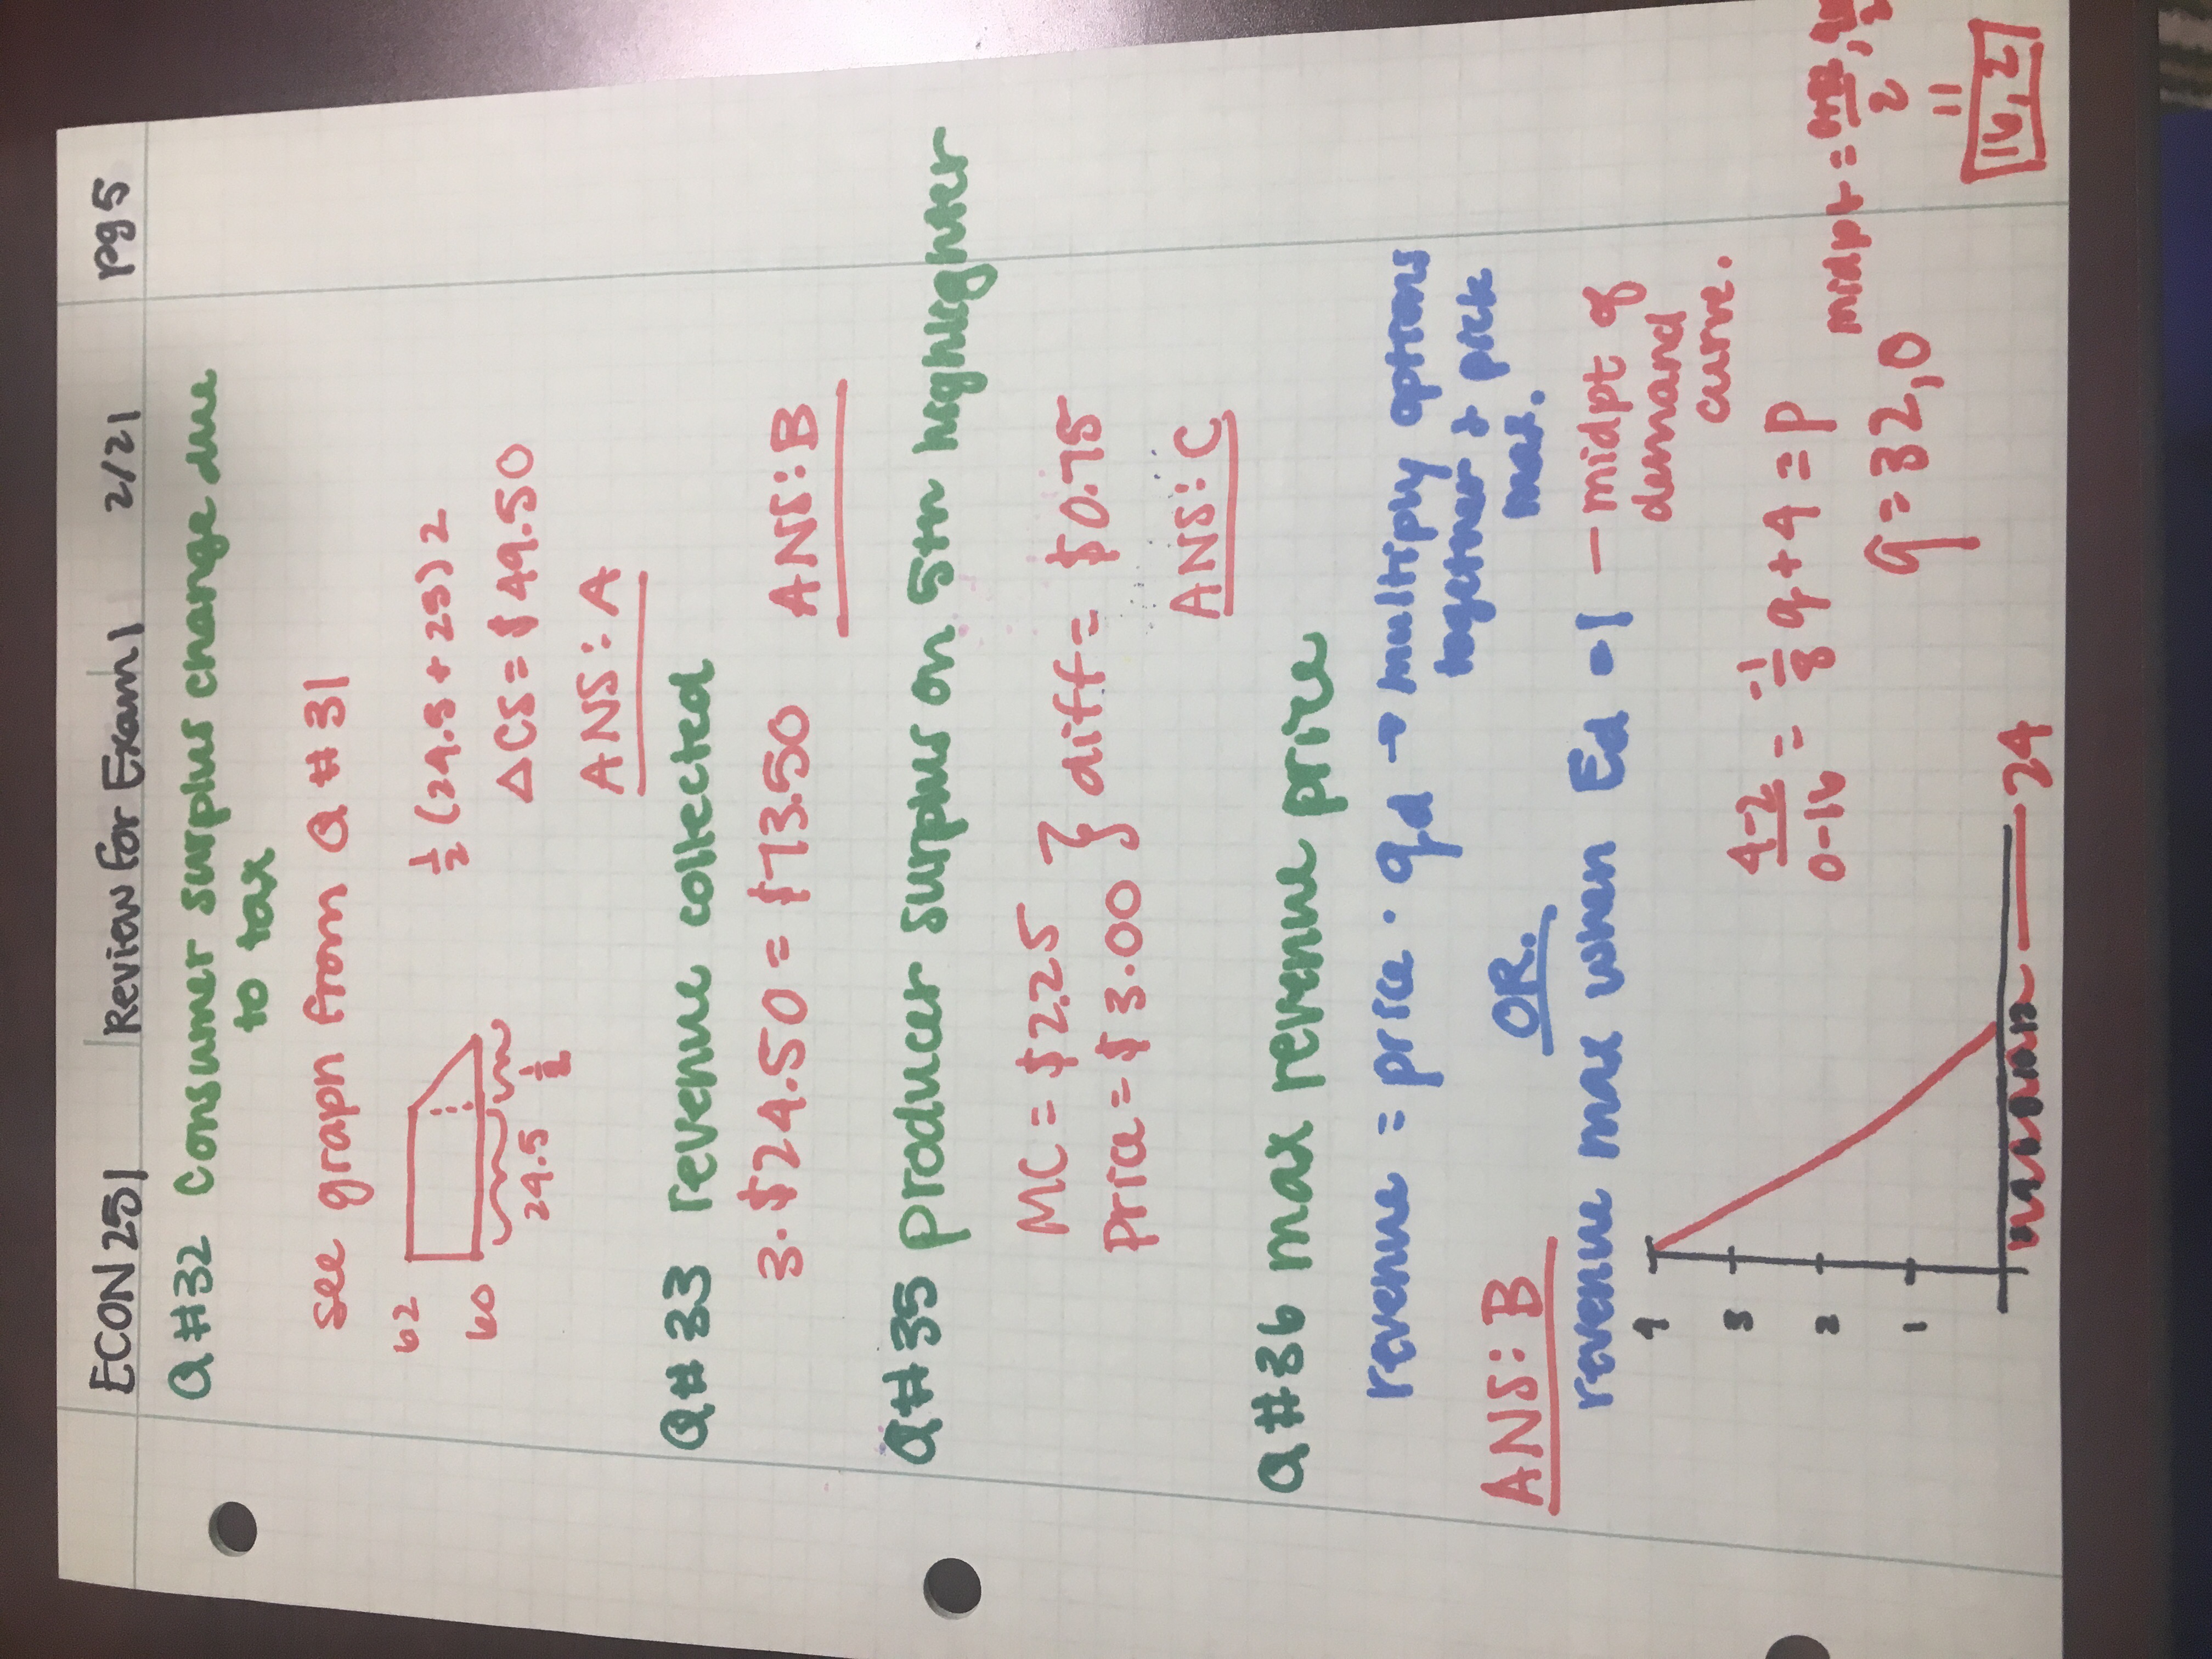 ECON 251 Review for Exam 1 2/21 pg 5
Q #32 Consumer surplus change due
to tax
see graph from Q #31
62
60
24.5 1/2
1/2 (24.5 + 25) 2
ΔCS = $49.50
ANS: A
Q# 33 revenue collected
3 · $24.50 = $73.50 ANS: B
Q# 35 producer surplus on 5th highlighter
MC = $2.25
Price = $3.00 } diff = $0.75
ANS: C
Q #36 max revenue price
revenue = price · qd → multiply options
together & pick
max.
ANS: B OR.
revenue max when Ed = 1 — midpt of
demand
curve.
4
3
2
1
4-2/0-16 = -1/8 q + 4 = P
q = 32, 0
midpt = /2, /2
11
16, 2
2 4 6 8 10 12 24